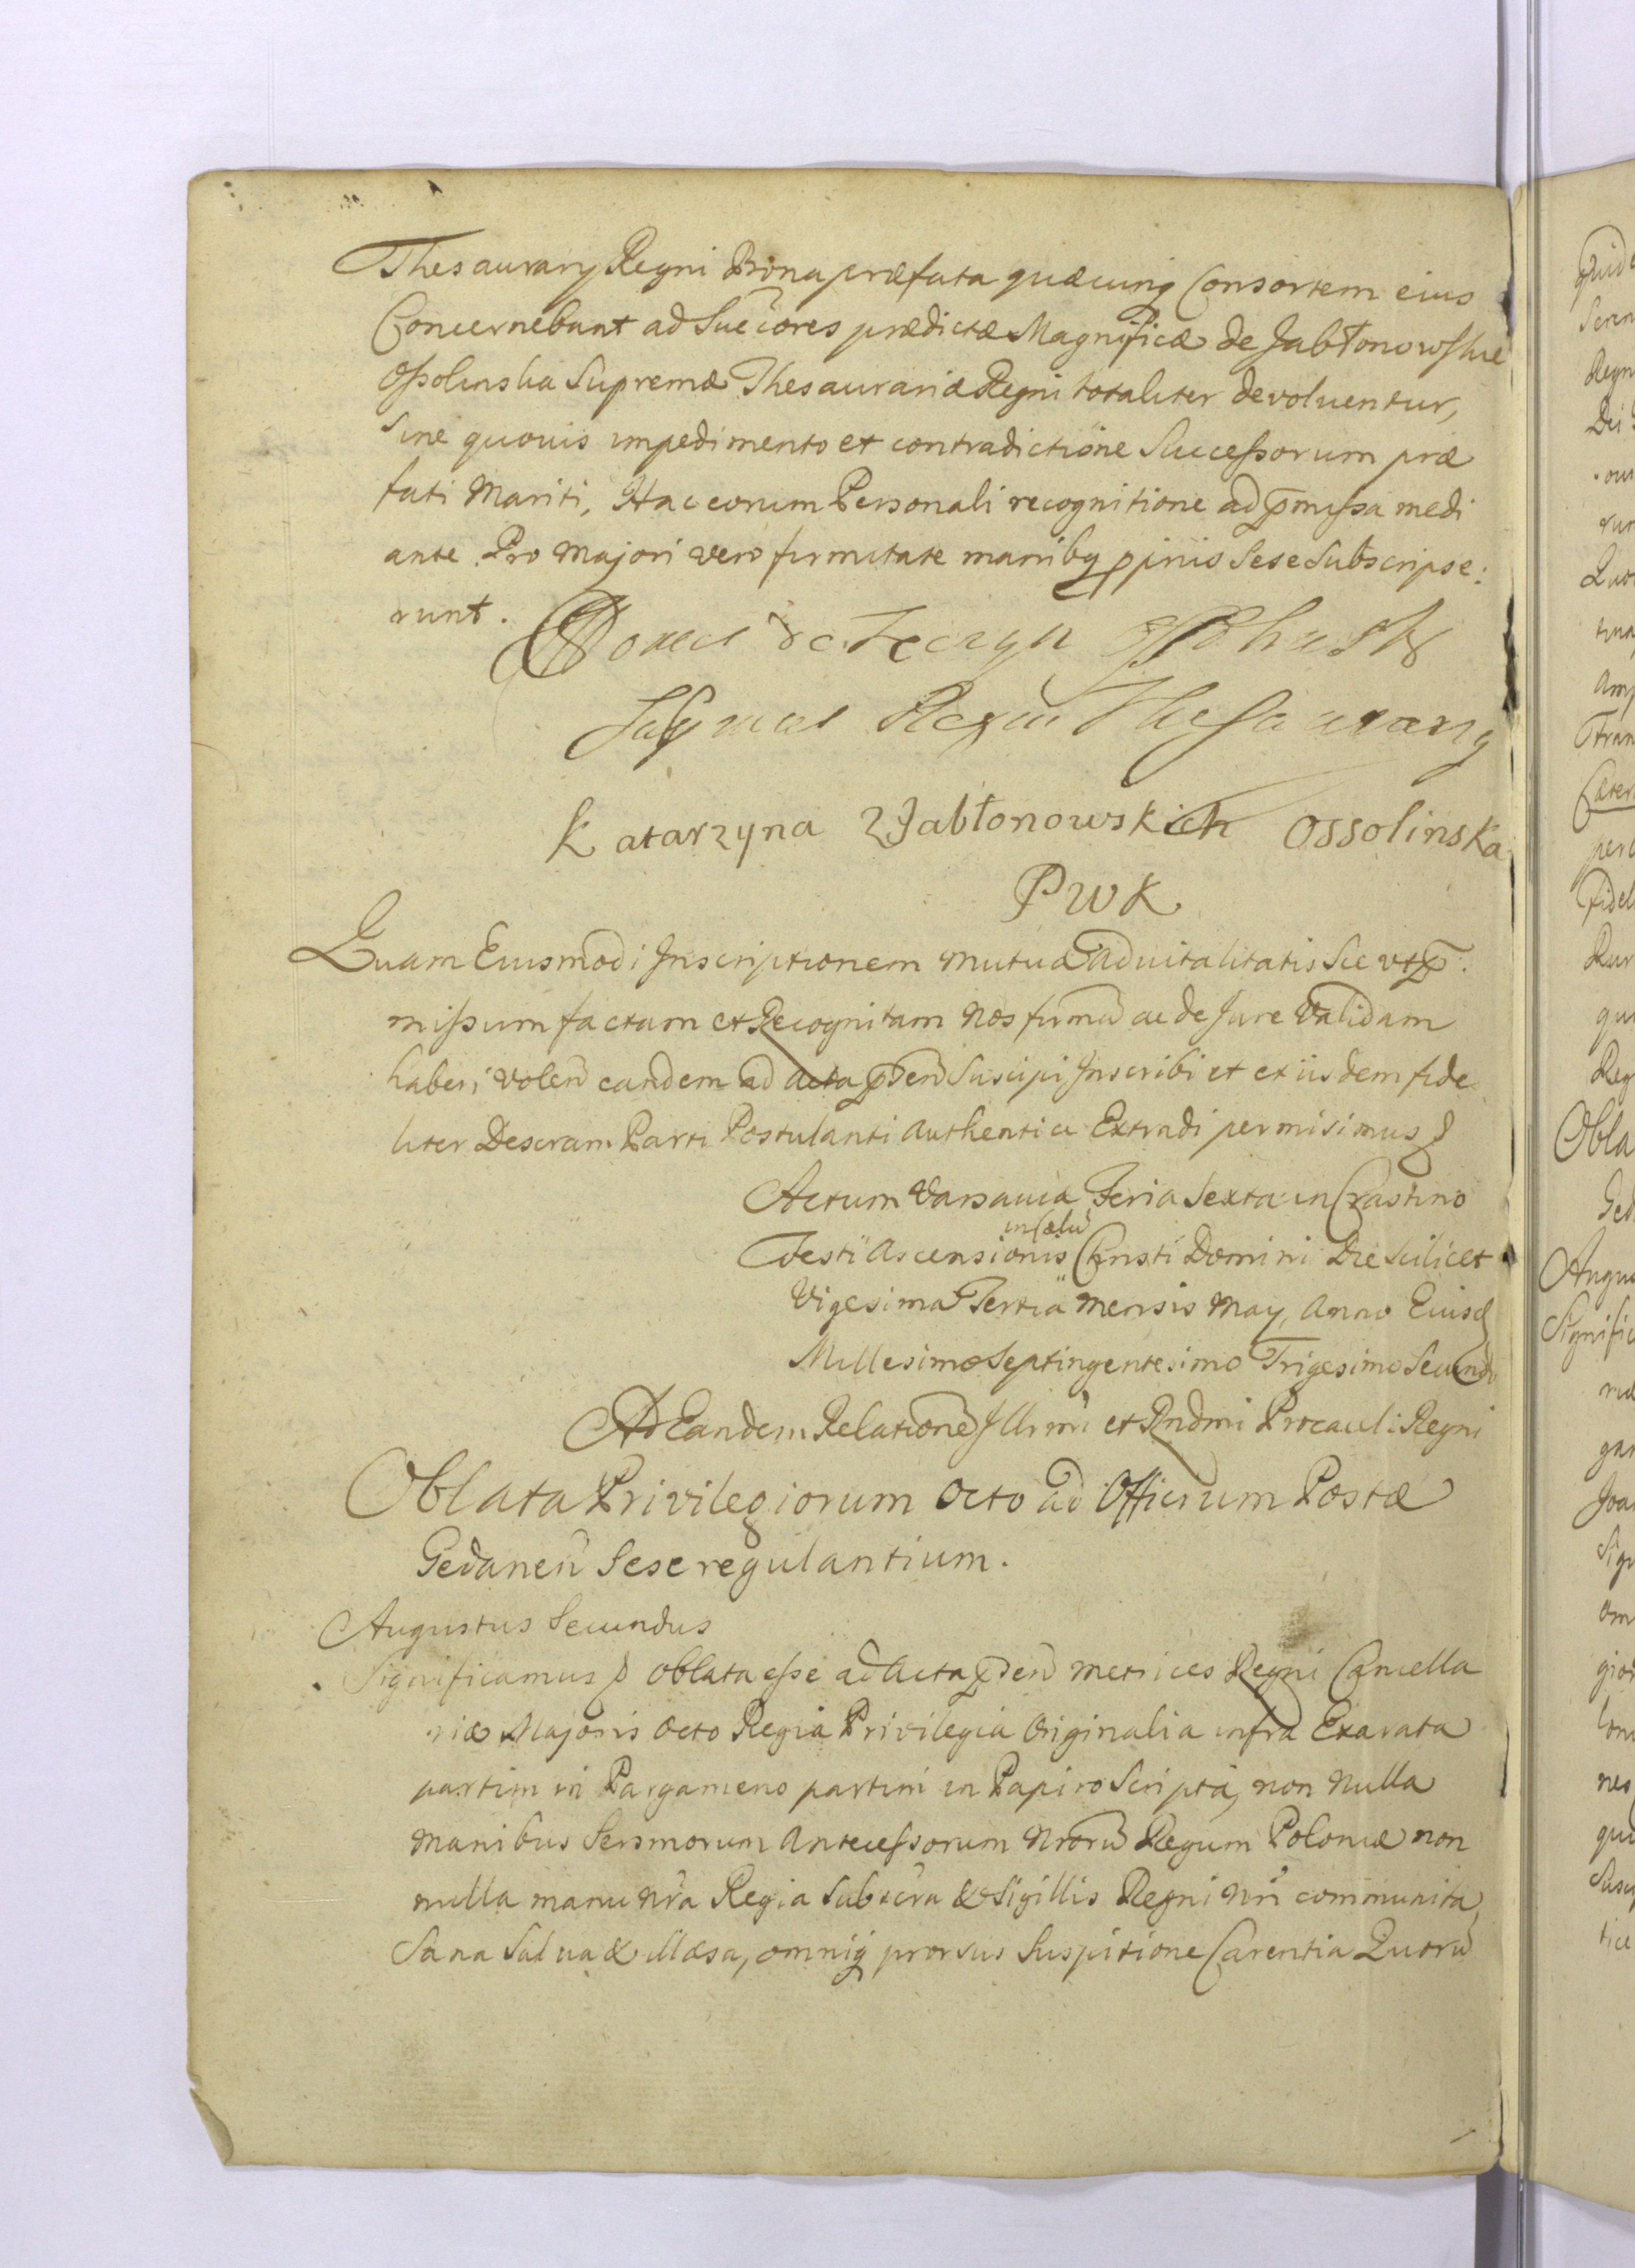 Thesaurarij Regni Bona præfata quæcunq Consortem eius
Concernebant ad Succores prædictæ Magnificæ de Jabłonowskie
Ossolinska Supremæ Thesaurariæ Regni totaliter devoluentur,
Sine quovis impedimento et contradictione Successorum præ
fati Mariti, Hac eorum Personali recognitione ad pmissa medi
ante. Pro Majori vero firmitate manibq ppriis Sese Subscripse:
runt.
de Teczyn
Regni Thesaurarig
Katarzyna z Jabłonowskich Ossolinska
PWK
Quam Eiusmodi Inscriptionem mutuæ Advitalitatis Sic vt p:
missum factam et Recognitam Nos firmā ac de Jure Validam
haberi volen eandem ad Acta pden Suscipi Inscribi et ex iisdem fide
liter Descram Parti Postulanti Authentice Extradi permisimus
Actum Varsaviæ Feria Sexta in Crastino
Festi Ascensionis in Cælū Christi Domini Die Scilicet
Vigesima Tertia Mensis May, Anno Eiusd
Millesimo Septingentesimo Trigesimo Secundo
Ad Eandem Relationē Illrmi et Rndmi Procacell: Regni
Oblata Privilegiorum octo ad Officium Postæ
Gedanen Sese regulantium.
Augustus Secundus
Significamus Oblata esse ad Acta pden metrices Regni Cancella
riæ Majoris Octo Regia Privilegia Originalia infra Exarata
partim in Pargameno partim in Papiro Scripta, non nulla
manibus Sersmorum Antecessorum Nrorū Regum Poloniæ non
nulla manu Nra Regia Subscra & Sigillis Regni Nri communita,
Sana Salva & illæsa, omniq prorsus Suspitione Carentia Quorū